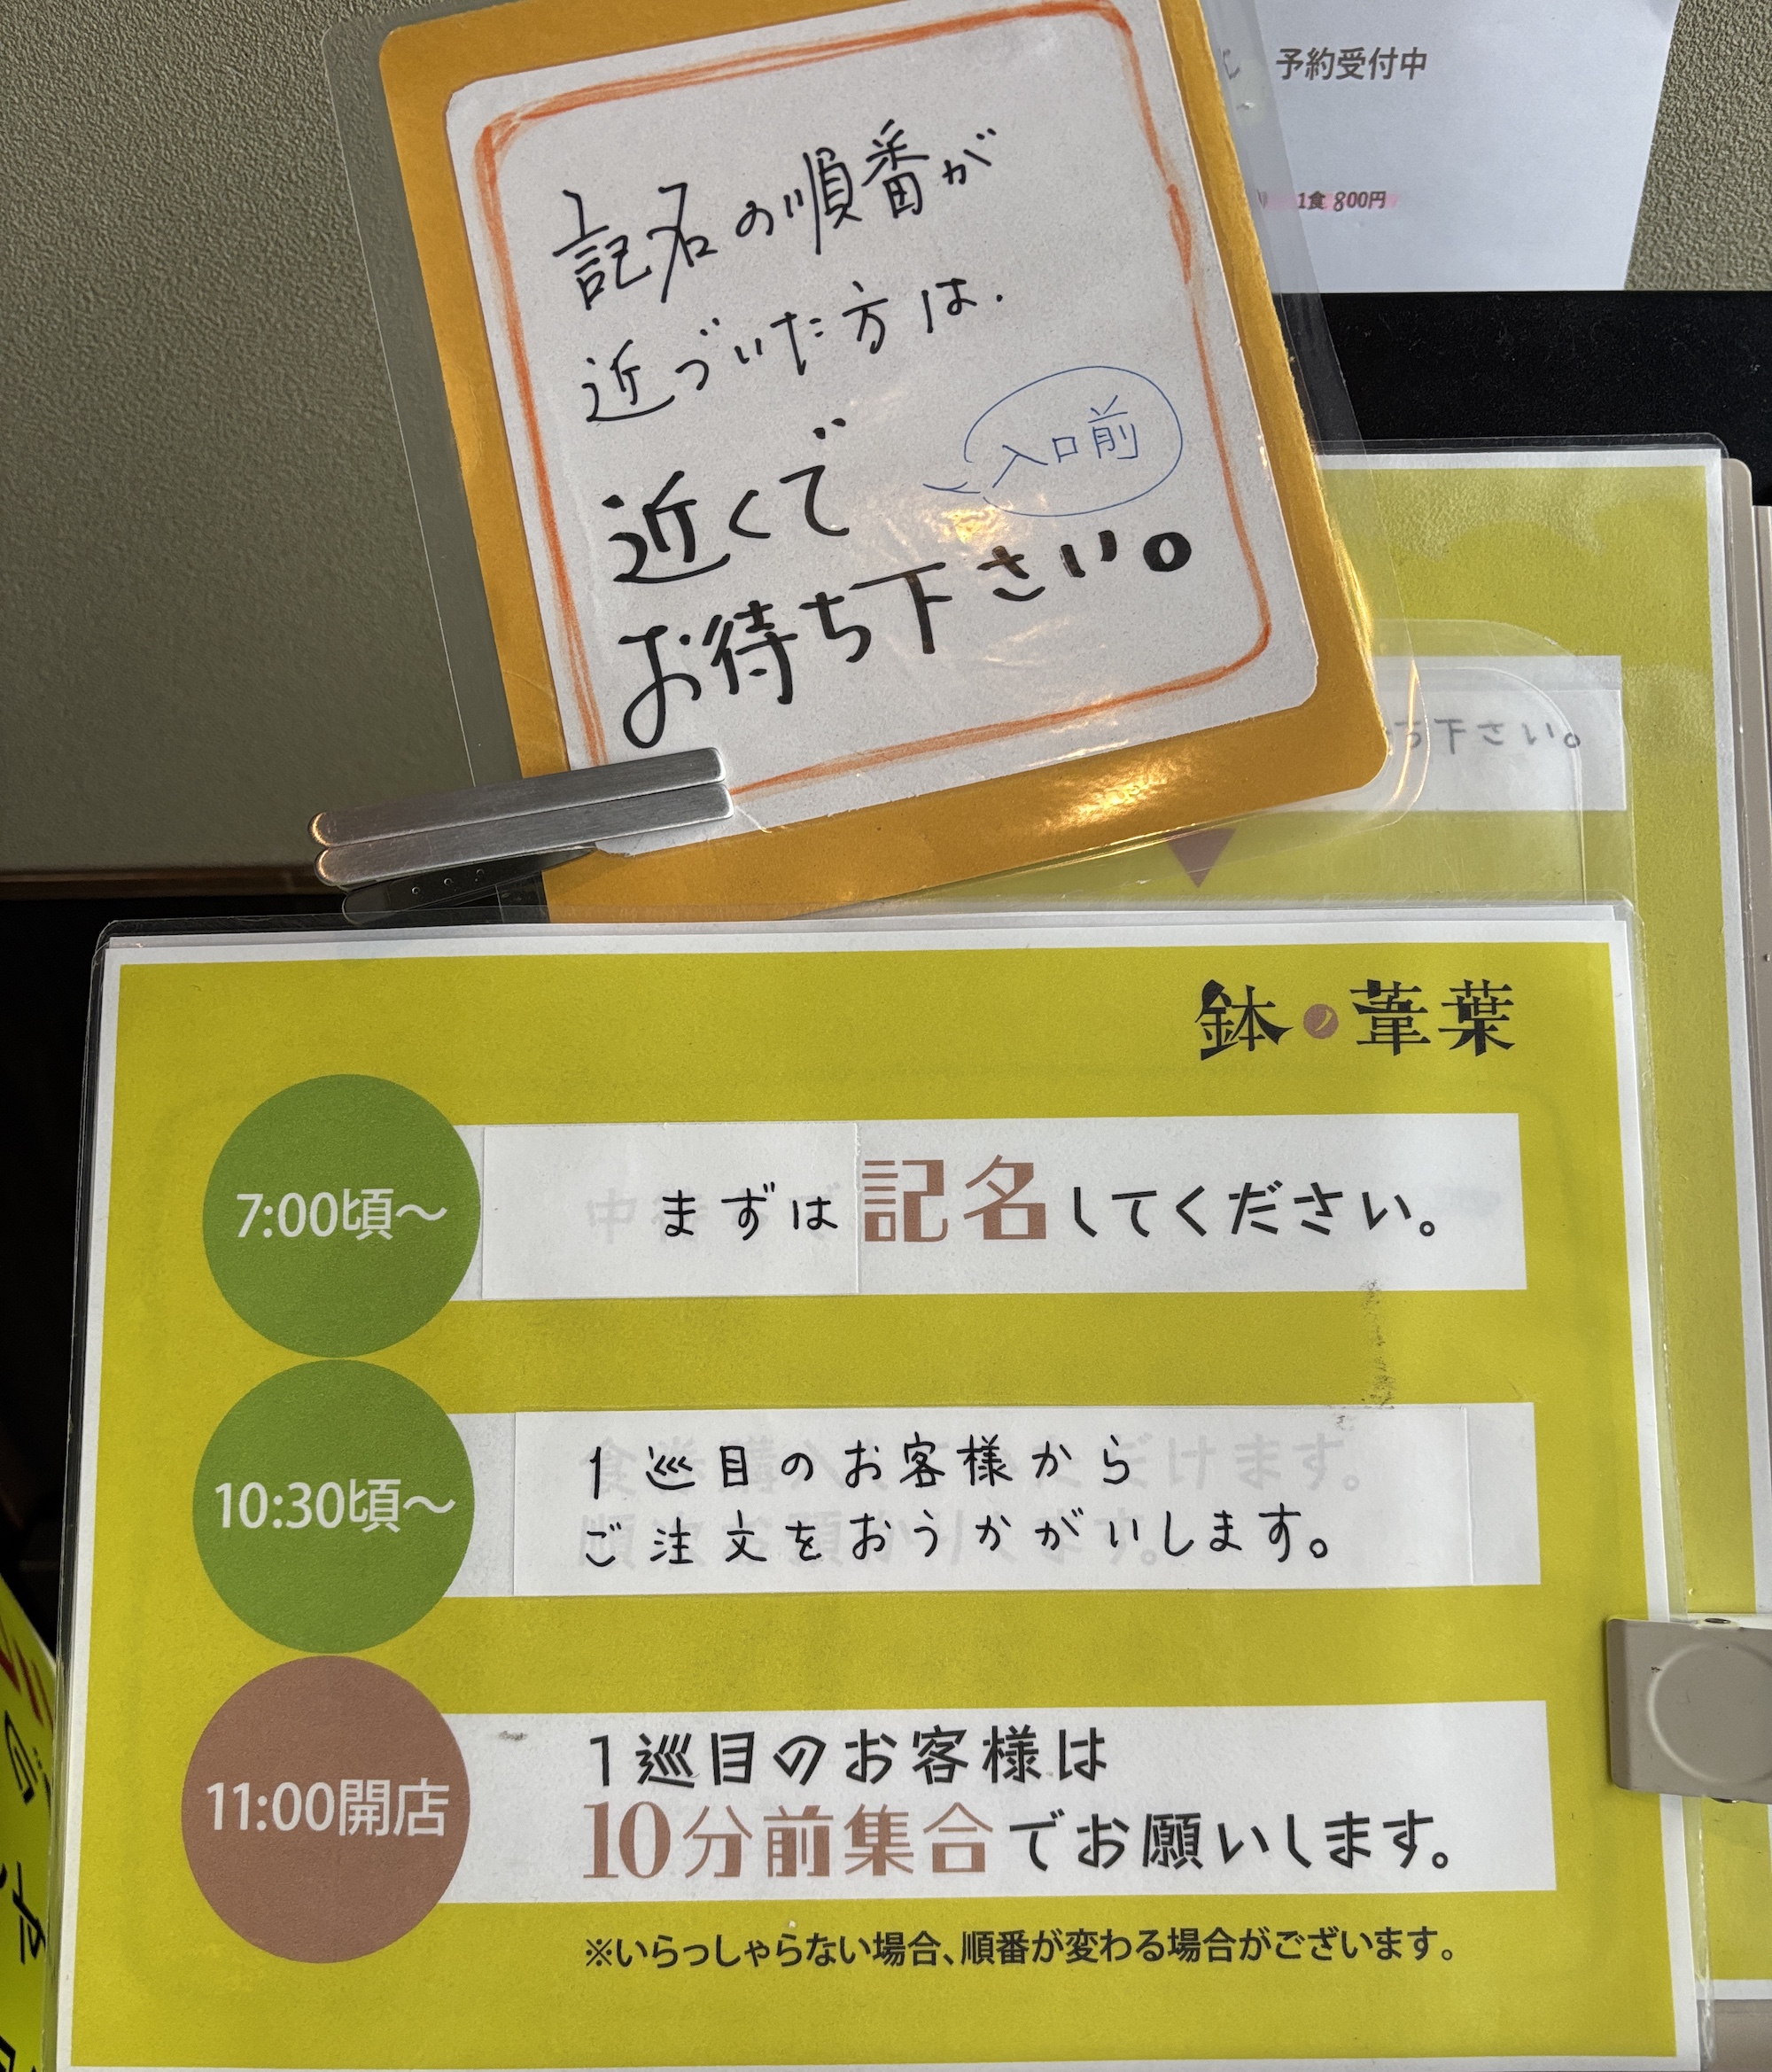 予約受付中
1食 800円
記名の順番が
近づいた方は.
近くで
入口前
お待ち下さい。
下さい。
鉢の葦葉
7:00頃〜
まずは記名してください。
10:30頃〜
1巡目のお客様から
ご注文をおうかがいします。
11:00開店
1巡目のお客様は
10分前集合でお願いします。
※いらっしゃらない場合、順番が変わる場合がございます。